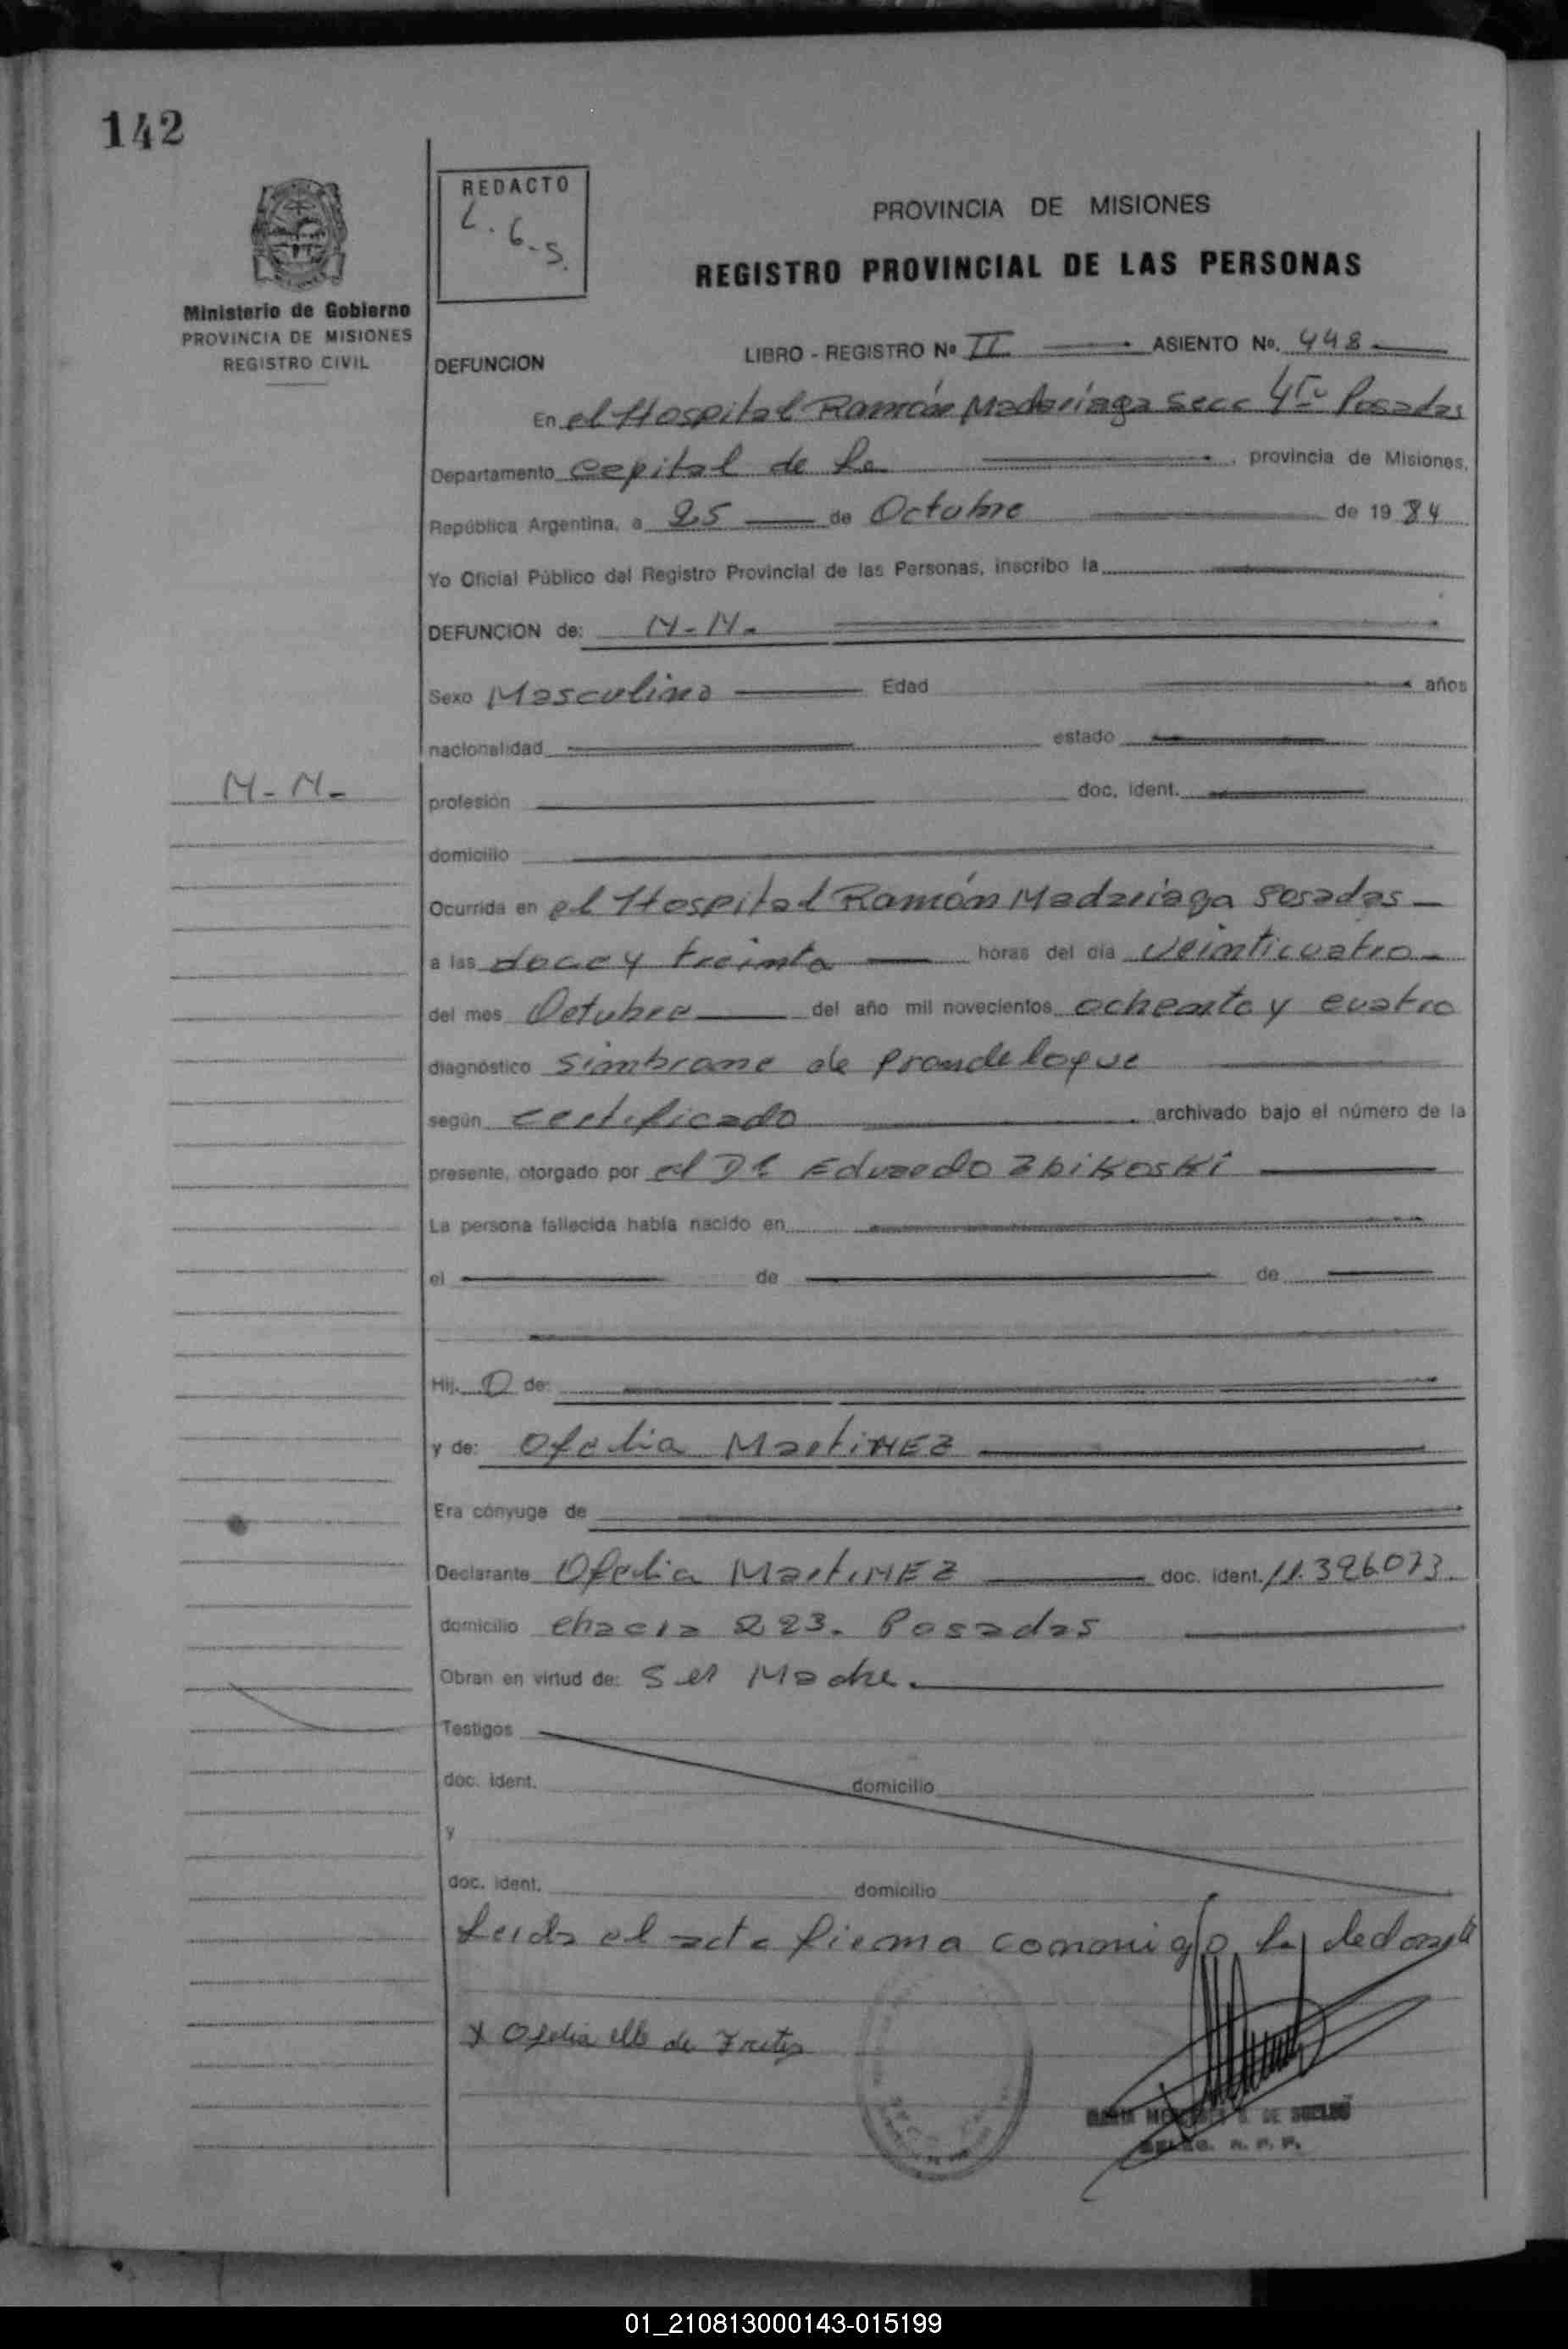 142
REDACTO
L. G. S.
Ministerio de Gobierno
PROVINCIA DE MISIONES
REGISTRO CIVIL
PROVINCIA DE MISIONES
REGISTRO PROVINCIAL DE LAS PERSONAS
DEFUNCION LIBRO - REGISTRO Nº II ASIENTO Nº. 448
En el Hospital Ramón Madariaga Secc 4ta Posadas
Departamento Capital de la provincia de Misiones,
República Argentina, a 25 de Octubre de 1984
Yo Oficial Público del Registro Provincial de las Personas, inscribo la
DEFUNCION de: N-N.
Sexo Masculino Edad años
nacionalidad estado
N-N-
profesión doc. ident.
domicilio
Ocurrida en el Hospital Ramón Madariaga Posadas
a las doce y treinta horas del día veinticuatro
del mes Octubre del año mil novecientos ochenta y cuatro
diagnóstico Simbrome de Prondeloque
según certificado archivado bajo el número de la
presente, otorgado por el Dr Eduardo Zbikoski
La persona fallecida había nacido en
el de de
Hij o de:
y de: Ofelia MartiNEZ
Era cónyuge de
Declarante Ofelia MartiNEZ doc. ident. 11.396.073
domicilio chacra 223. Posadas
Obran en virtud de: Ser Madre.
Testigos
doc. ident. domicilio
y
doc. ident. domicilio
Leida el acta firma conmigo la
x Ofelia de
DE
DELEG. R. P. P.
01_210813000143-015199